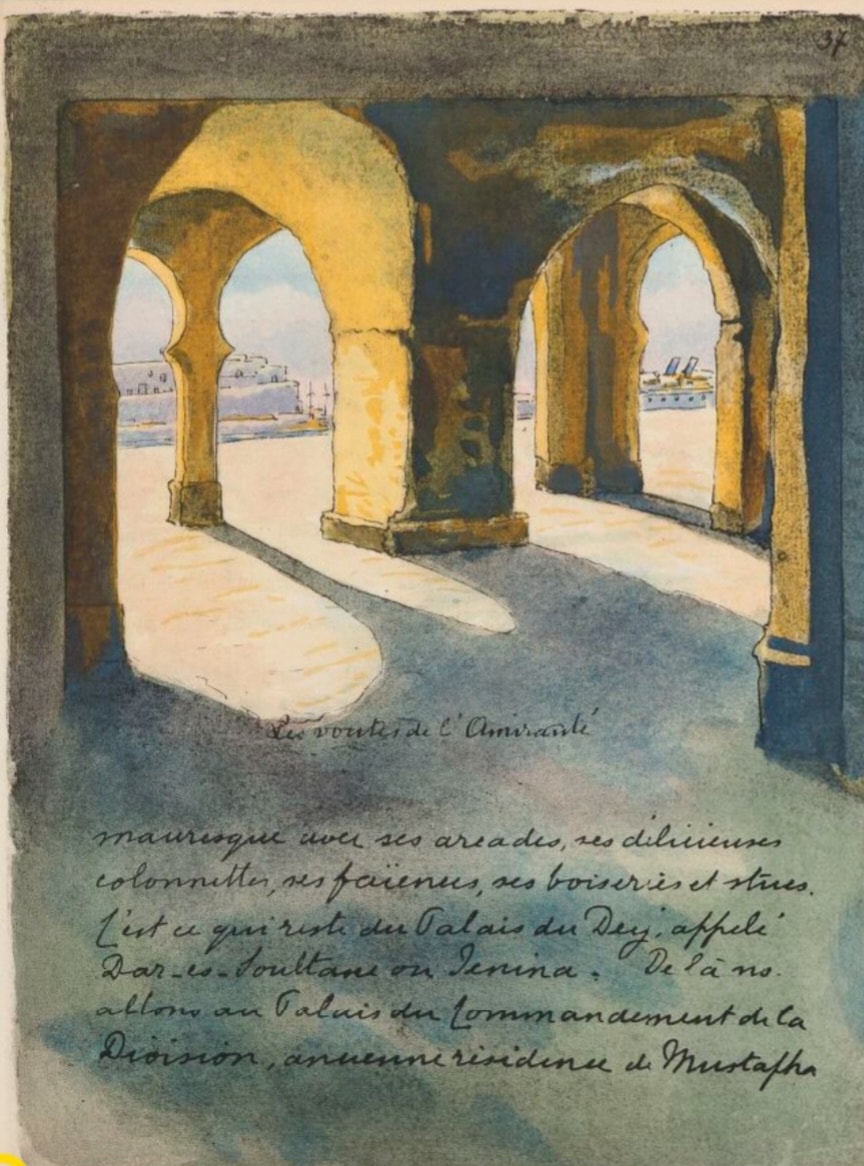 37
Les voutes de l'Amirauté
mauresque avec ses arcades, ses délicieuses
colonnettes, ses faïences, ses boiseries et stucs.
C'est ce qui reste du Palais du Dey, appelé
Dar-es-Soultane ou Jenina. De là ns.
allons au Palais du Commandement de la
Division, ancienne résidence de Mustapha